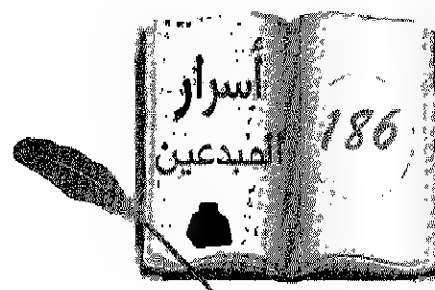 أسرار
المبدعين
186